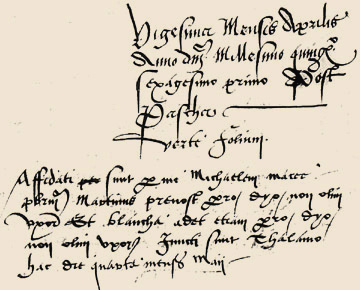 Vigesima Mensis Aprilis
Anno dm̃ Millesimo quing.º
sexagesimo primo Post
Pascha
Verte folium.
Affidati sunt per me Michaelem
pbrm̃ Martinus prevost
uxor Et blancha adet etiam
non uxor Juncti sunt Thalamo
hac die quarta mensis Maii